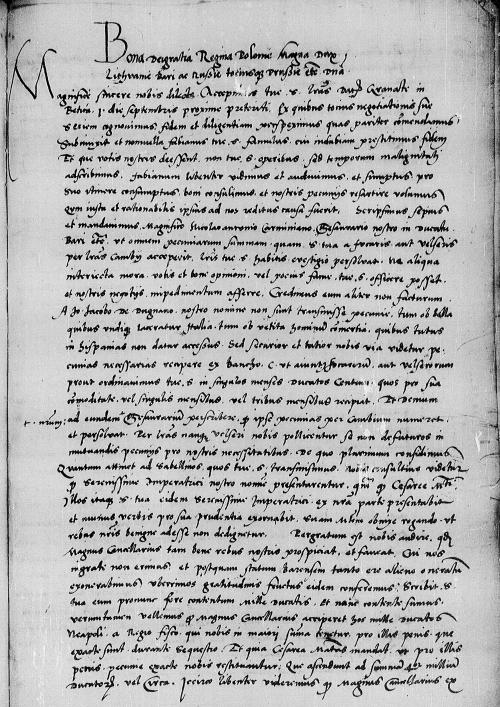 Bona Dei gratia Regina Polonie Magna Dux
Lithuanie Bari ac Russie totiusque Prussie etc. Dna
Magnifice syncere nobis dilecte Accepimus tue s. lras Datas Granate in
Betica 1 die septembris proxime preteriti Ex quibus totius negotiationis sue
seriem cognovimus, fidem et diligentiam perspeximus quas pariter comendamus
Subiunxit et nonnulla fabianus tue s. famulus, cui indubiam prestitimus fidem
Et que votis nostris deessent, non tue s. operibus, sed temporum malignitati
adscribimus. fabianum libenter vidimus et audivimus, et sumptus pro
suo itinere consumptos, boni consulimus, et nostris pecuniis resarcire volumus
Cum iusta et rationabilis ipsius ad nos reditus causa fuerit. Scripsimus sepius
et mandavimus, Magnifico Nicolao antonio Carminiano, Thesaurario nostro in Ducatu
Bari etc. vt omnem pecuniarum summam, quam s. tua a focaris aut velseris
per lras Cambij acceperit, lris tue s. habitis, e vestigio persolvat. Ne aliqua
interiecta mora, nobis et boni opinioni, vel potius fame tue s. officere posset,
et nostris negotijs impedimentum afferre. Credimus eum aliter non facturum.
A Jo. Jacobo de Dugnano, nostro nomine non sunt transmisse pecunie, tum ob bella
quibus undique laceratur Italia, tum ob vetita hominum comertia, quibus tutus
in hispanias non datur accessus. Sed securior et tutior nobis via videtur pe-
cunias necessarias recipere ex bancho, C. vt aiunt, focarorum, aut velserorum
prout ordinavimus tue s. in singulos menses Ducatos Centum, quos pro sua
comoditate, vel singulis mensibus, vel tribus mensibus recipiat. Et Demum
ad eundem Thesaurarium perscribere, qui ipse pecunias per Cambium numeret,
et persolvat. Per lras nanque velseri nobis pollicentur se non defuturos in
mutuandis pecunijs pro nostris necessitatibus. De quo plurimum confidimus
Quantum attinet ad Sabellinos, quos tue s. transmisimus. Nobis consultius videtur
quod Serenissime Imperatrici nostro nomine presentarentur, quam Cesaree Mti.
Illos itaque s. tua eidem Serenissime Imperatrici, ex nra parte presentabit
et munus, verbis pro sua prudentia exornabit. Suam Mtem obnixe rogando, vt
rebus nris benigne adesse non dedignetur. Pergratum est nobis audire, quod
Magnus Cancellarius tam bene rebus nostris prospiciat, et faveat, Cui nos
ingrati non erimus, et postquam statum Barensem tanto ere alieno oneratum
exonerabimus, vberrimos gratitudinis fructus eidem conferemus. Scribit s.
tua eum pronunc fore contentum mille Ducatis. Et nunc contente sumus,
veruntamen vellemus quod Magnus Cancellarius acciperet hos mille ducatos
Neapoli a Regio fisco, qui nobis in maiori suma tenetur, pro illis penis, que
exacte sunt durante sequestro. Et que Cesarea Maiestas mandat, vt pro illis
penis, pecunie exacte nobis restituantur. Que ascendunt ad sumam milium
Ducatorum, vel circa. Iccirco libenter videremus quod Magnus Cancellarius ex